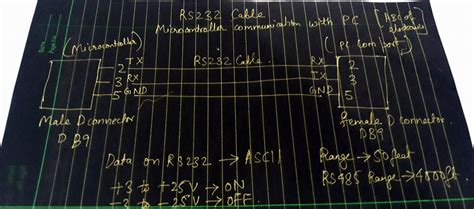 RS232 Cable
Microcontroller communication with PC
[ABC of electronics]
(Microcontroller)
RS232 Cable
(PC Com port)
2 TX RX 2
3 RX TX 3
5 GND GND 5
Male D connector
DB9
Female D connector
DB9
Data on RS232 → ASCII
Range → 50 feet
RS485 Range → 4000 ft
+3 to +25V → ON
-3 to -25V → OFF